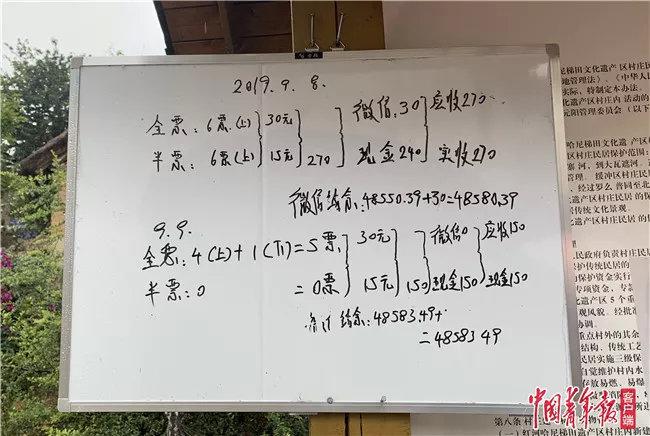 2019.9.8.
全票：6票(上) 30元 微信：30 应收270
半票：6票(上) 15元 270 现金240 实收270
微信结余：48550.39+30=48580.39
9.9.
全票：4(上)+1(下)=5票 30元 微信0 应收150
半票：0 =0票 15元 150 现金150 现金150
结余：48583.49+
=4858349
尼梯田文化遗产区村庄民
地管理法》、《中华人
实际，特制定本办法。
化遗产区村庄内活动的
元阳管理委员会（以下
哈尼梯田文化遗产区村
区村庄民居保护范围：
寨河，到大瓦遮河。
管理。缓冲区村庄民居
经过罗么普同至北
化遗产区村庄民居的保
居传统文化景观。
民政府负责村庄民
护传统民居的
保护资金实行
专项资金，专
化遗产区5个重
观风貌。经批
协调。
重点村外的其余
结构、传统工艺
民居实施三级保
自觉维护村内水
存放易燃、易爆
第八条
（一）红河哈尼梯田遗产区村庄内新建
中国青年报
客户端